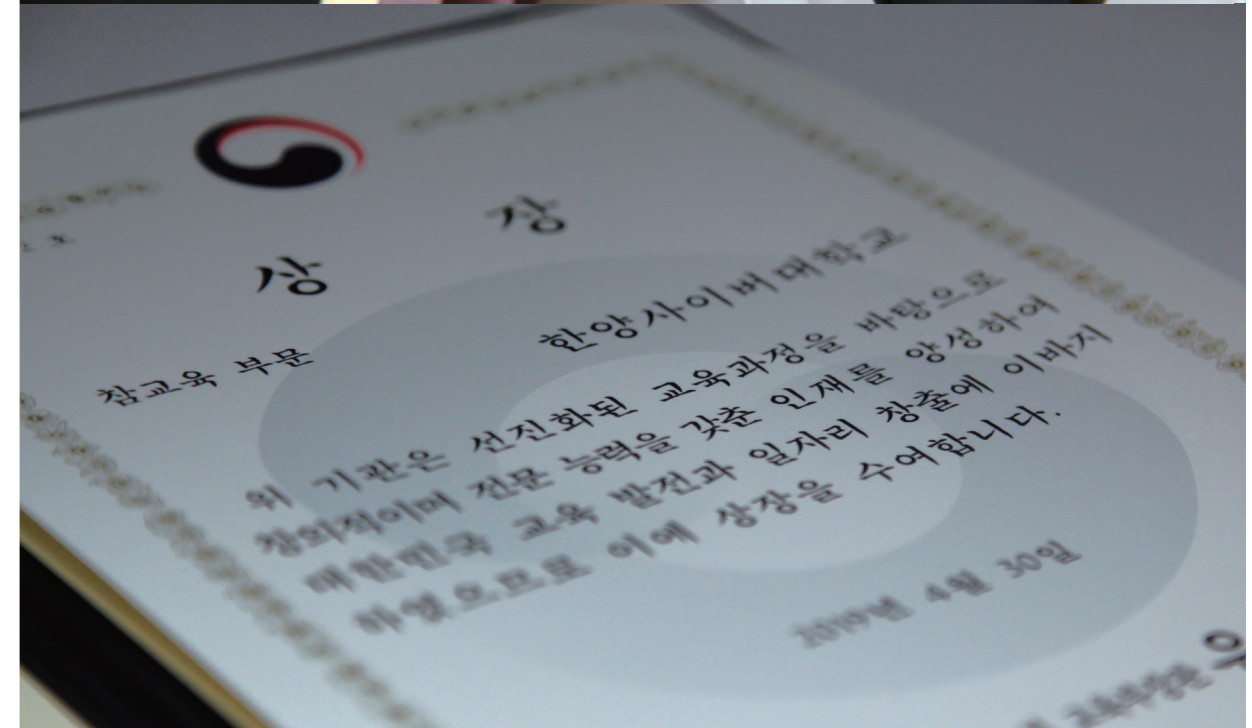 상 장
참교육 부문
한양사이버대학교
위 기관은 선진화된 교육과정을 바탕으로
창의적이며 전문 능력을 갖춘 인재를 양성하여
대한민국 교육 발전과 일자리 창출에 이바지
하였으므로 이에 상장을 수여합니다.
2019년 4월 30일